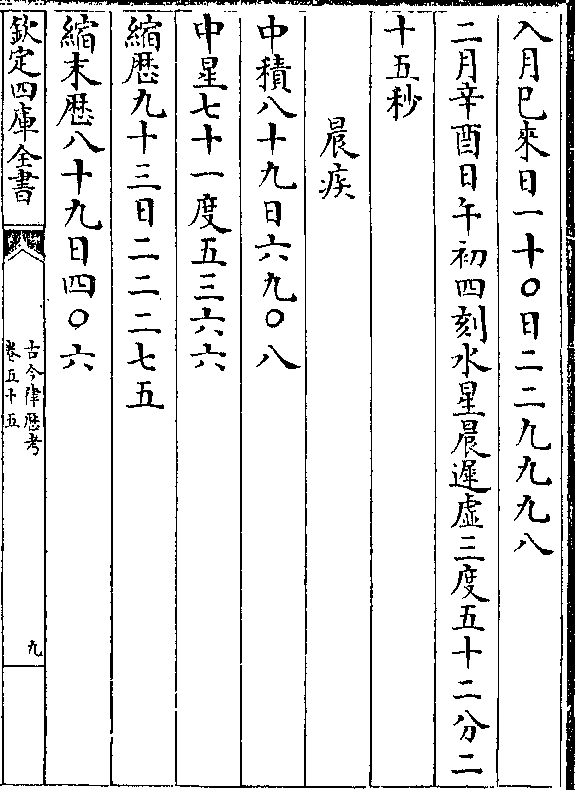 入月已來日一十〇日二二九九九八
二月辛酉日午初四刻水星晨遲虛三度五十二分二
十五秒
晨疾
中積八十九日六九〇八
中星七十一度五三六六
縮歴九十三日二二二七五
縮末歴八十九日四〇六
欽定四庫全書
古今律歴考
卷五十五
九